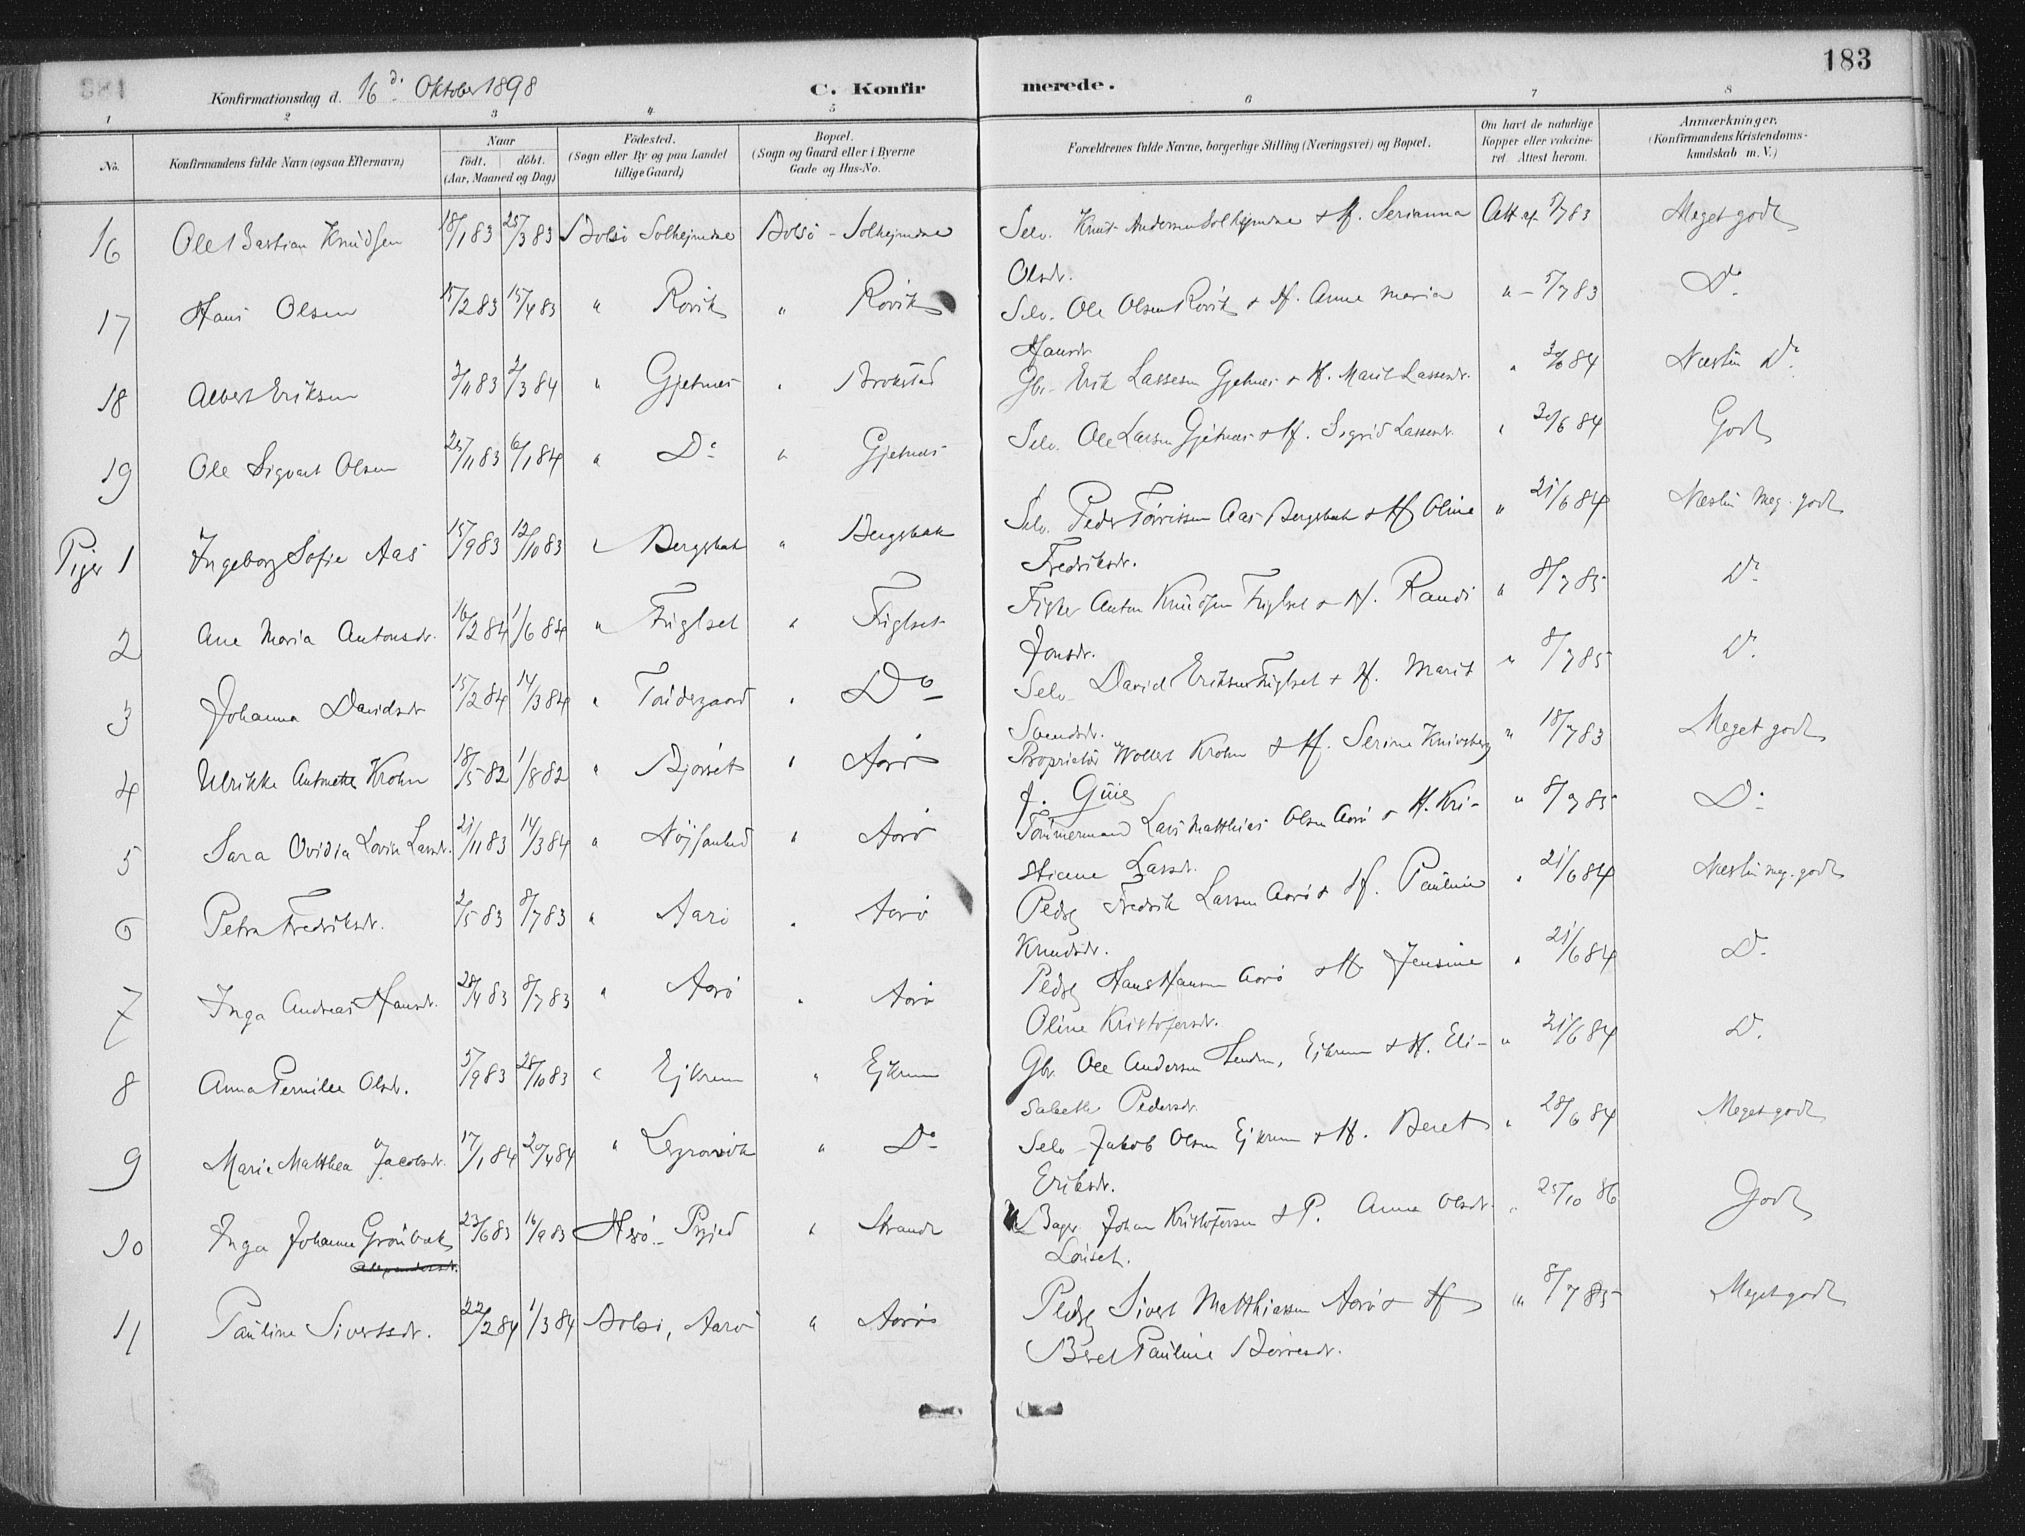 183
Konfirmationsdag d. 16d. Oktober 1898
C. Konfirmerede.
1 2 3 4 5 6 7 8
No.
Konfirmandens fulde Navn (ogsaa Efternavn)
Naar
födt. döbt.
(Aar, Maaned og Dag)
Födested.
(Sogn eller By og paa Landet
tillige Gaard)
Bopæl.
(Sogn og Gaard eller i Byerne
Gade og Hus-No.
Forældrenes fulde Navne, borgerlige Stilling (Næringsvei) og Bopæl.
Om havt de naturlige
Kopper eller vakcine-
ret. Attest herom.
Anmærkninger.
(Konfirmandens Kristendoms-
kundskab m. V.)
16 Ole Bastian Knudsen 18/1 83 25/3 83 Bolsö Solhejmdne Bolsö - Solhejmdne Selv. Knut Andersen Solhejmdne & H. Serianna Att af 5/7 83 Meget godt
Olsdr.
17 Hans Olsen 15/2 83 15/4 83 " Rövik " Rövik Selv. Ole Olsen Rövik & H. Anne Maria " - 5/7 83 Do
Hansdr.
18 Albert Eriksen 3/11 83 2/3 84 " Gjetnes " Brokstad Gbr. Erik Lassesen Gjetnes & H. Marit Lassesdr. " 30/6 84 Næsten Do
19 Ole Sigvart Olsen 25/11 83 6/1 84 " Do " Gjetnes Selv. Ole Larsen Gjetnes & H. Sigrid Lassesdr. " 30/6 84 Godt
Piger 1 Ingeborg Sofie Aas 15/9 83 12/10 83 " Bergsbak " Bergsbak Selv. Peder Törrissen Aas Bergsbak & H Oline " 21/6 84 Næsten meg. godt
Fredriksdr.
2 Ane Maria Antonsdr. 16/2 84 1/6 84 " Fuglset " Fuglset Fisker Anton Knudsen Fuglset & H. Randi " 8/7 85 Do
Jonsdr.
3 Johanna Davidsdr 15/2 84 14/3 84 " Töndergaard " Do Selv. David Eriksen Fuglset & H. Marit " 8/7 85 Do
Svendsdr.
4 Ulrikke Antonette Krohn 18/5 82 1/8 82 " Bjørset " Aarö Proprietär Wollert Krohn & H. Serine Knivsberg " 18/7 83 Meget godt
5 Sara Ovidia Lovise Larsdr. 21/11 83 14/3 84 " Nöjsomhed " Aarö Tömmermand Lars Matthias Olsen Aarö & H. Kri- " 8/7 85 Do
stiane Larsdr.
6 Petra Fredriksdr. 2/5 83 8/7 83 " Aarö " Aarö Pedsg Fredrik Larsen Aarö & H. Pauline " 21/6 84 Næsten meg. godt
Knudsdr.
7 Inga Andreas Hansdr. 28/4 83 8/7 83 " Aarö " Aarö Pedsg Hans Hansen Aarö & H. Jensine " 21/6 84 Do
Oline Kristofersdr.
8 Anna Pernille Olsdr. 5/9 83 28/10 83 " Ejkrem " Ejkrem Gbr. Ole Andersen Ejkrem & H. Eli- " 21/6 84 Do
sabeth Pedersdr.
9 Marie Matthea Jacobsdr. 17/1 84 20/4 84 " Legrovik " Do Selv. Jakob Olsen Ejkrem & H. Beret " 28/6 84 Meget godt
Eriksdr.
10 Inga Johanna Grönbak 23/6 83 16/9 83 " Strande Bager Johan Kristofersen & P. Anne Olsdr. " 25/10 86 Godt
Lönset.
11 Pauline Sivertsdr. 22/2 84 1/3 84 Bolsö, Aarö " Aarö Pedsg Sivert Matthiassen Aarö & H " 8/7 85 Meget godt
Beret Pauline Börresdr.